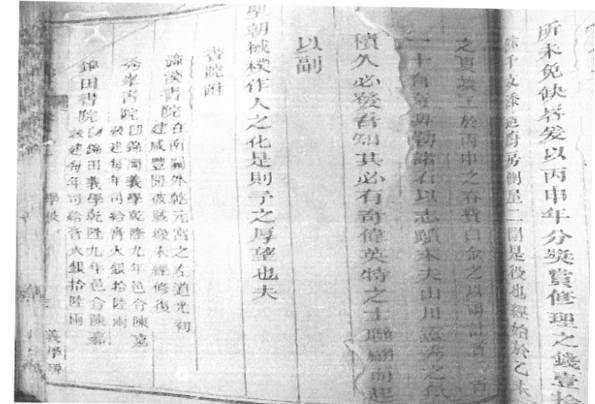 所未免缺辱爰以丙申年分獎賞修理之錢壹拾
千文添造廚房側屋二間是役也經始於乙未
之夏竣工於丙申之春費白金之以兩計者一百
一十有奇爰勒諸石以志顛末夫山川靈秀之氣
積久必發吾知其必有奇偉英特之士聯翩而起
以副
聖朝棫樸作人之化是則予之厚望也夫
書院附
濂溪書院在南關外乾元宮之左道光初
建咸豐間被賊燬未經修復
秀峯書院即錦岡義學乾隆九年邑令陳嘉
穀建每年司給膏火銀拾陸兩
錦田書院即錦田義學乾隆九年邑令陳嘉
穀建每年司給膏火銀拾陸兩
學校
義學